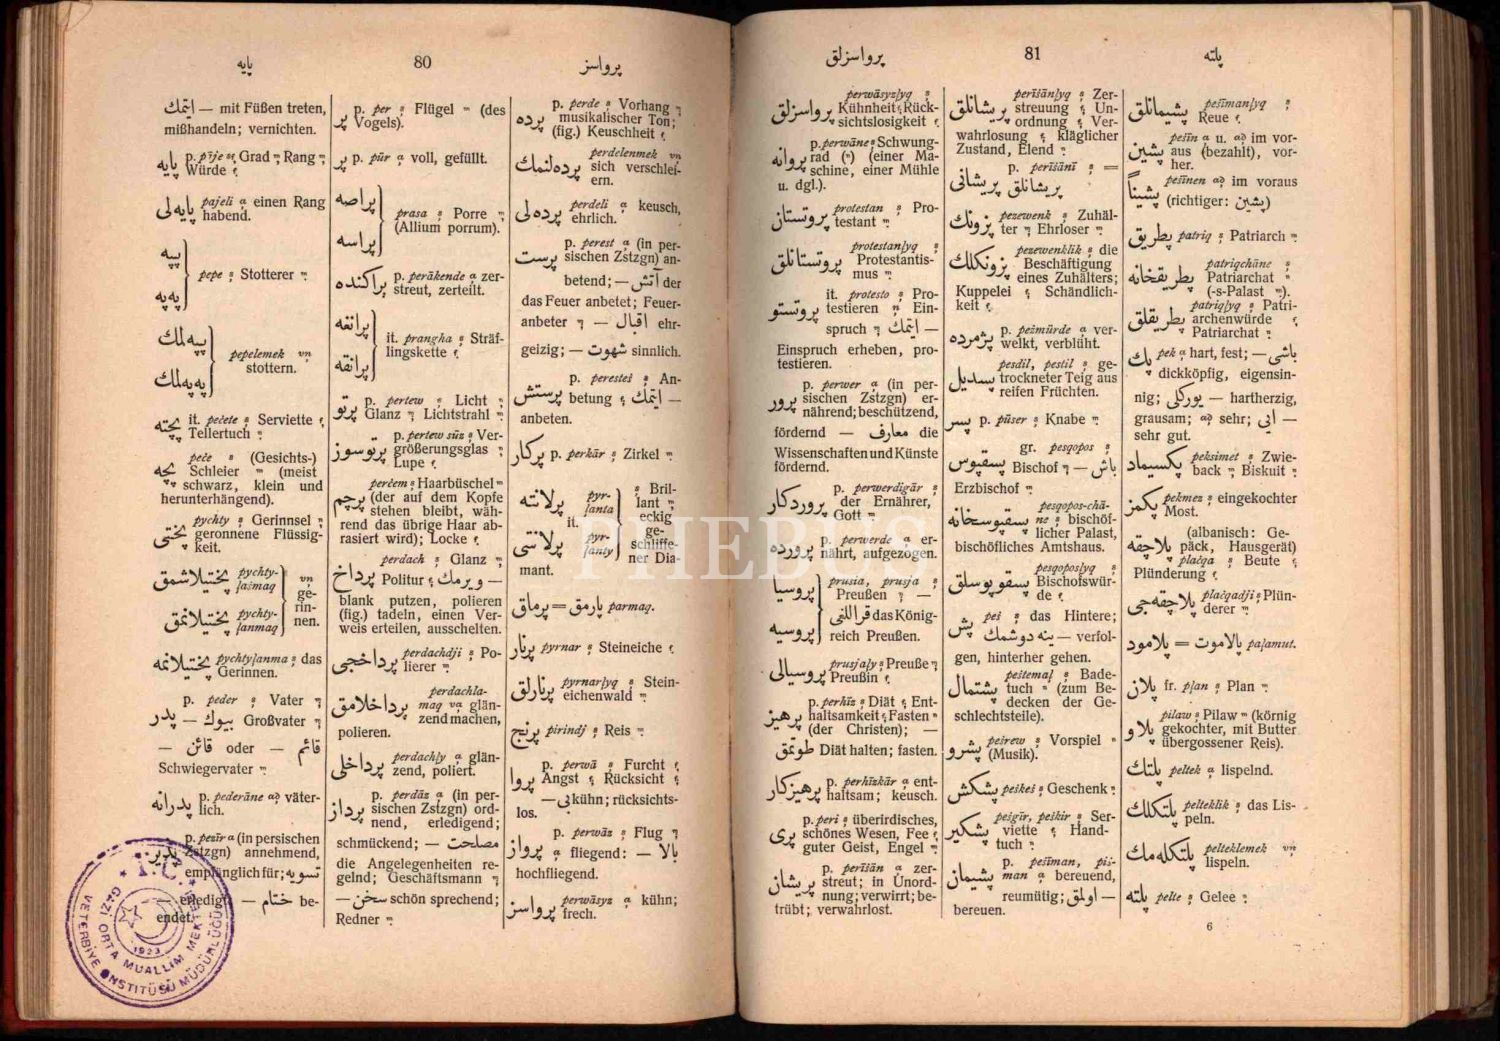 پایه 80 پرواسز
ایتمك — mit Füßen treten,
mißhandeln; vernichten.
پایه p. pīje Grad Rang
Würde
پایه‌لی pajeli einen Rang
habend.
پپه
په‌په
pepe Stotterer
پپه‌لمك
په‌په‌لمك
pepelemek
stottern.
پچته it. pečete Serviette
Tellertuch
پچه peče (Gesichts-)
Schleier (meist
schwarz, klein und
herunterhängend).
پختی pychty Gerinnsel
geronnene Flüssig-
keit.
پختیلاشمق pychty-
lašmaq
پختیلانمق pychty-
lanmaq
ge-
rin-
nen.
پختیلانمه pychtylanma das
Gerinnen.
پدر p. peder Vater
— بیوك Großvater
— قائن oder — قائم
Schwiegervater
پدرانه p. pederāne väter-
lich.
پذیر p. pezīr (in persischen
Zstzgn) annehmend,
empfänglich für; تسویه
erledigt — ختام be-
endet.
پر p. per Flügel (des
Vogels).
پر p. pür voll, gefüllt.
پراصه
پراسه
prasa Porre
(Allium porrum).
پراكنده p. perākende zer-
streut, zerteilt.
پرانغه
پرانقه
it. prangha Sträf-
lingskette
پرتو p. pertew Licht
Glanz Lichtstrahl
پرتوسوز p. pertew sūz Ver-
größerungsglas
Lupe
پرچم perčem Haarbüschel
(der auf dem Kopfe
stehen bleibt, wäh-
rend das übrige Haar ab-
rasiert wird); Locke
پرداخ perdach Glanz
Politur — ویرمك
blank putzen, polieren
(fig.) tadeln, einen Ver-
weis erteilen, ausschelten.
پرداخجی perdachdji Po-
lierer
پرداخلامق perdachla-
maq glän-
zend machen,
polieren.
پرداخلی perdachly glän-
zend, poliert.
پرداز p. perdāz (in per-
sischen Zstzgn) ord-
nend, erledigend;
schmückend; — مصلحت
die Angelegenheiten re-
gelnd; Geschäftsmann
— سخن schön sprechend;
Redner
پرده p. perde Vorhang
musikalischer Ton;
(fig.) Keuschheit
پرده‌لنمك perdelenmek
sich verschlei-
ern.
پرده‌لی perdeli keusch,
ehrlich.
پرست p. perest (in per-
sischen Zstzgn) an-
betend; — آتش der
das Feuer anbetet; Feuer-
anbeter — اقبال ehr-
geizig; — شهوت sinnlich.
پرستش p. peresteš An-
betung — ایتمك
anbeten.
پركار p. perkār Zirkel
پرلانته
پرلانتی
it.
pyr-
lanta
pyr-
lanty
Bril-
lant
eckig
ge-
schliffe-
ner Dia-
mant.
پرماق = پارمق parmaq.
پرنار pyrnar Steineiche
پرنارلق pyrnarlyq Stein-
eichenwald
پرنج pirindj Reis
پروا p. perwā Furcht
Angst Rücksicht
— بی kühn; rücksichts-
los.
پرواز p. perwāz Flug
fliegend: — بالا
hochfliegend.
پرواسز perwāsyz kühn;
frech.
پرواسزلق 81 پلته
پرواسزلق perwāsyzlyq
Kühnheit Rück-
sichtslosigkeit
پروانه p. perwāne Schwung-
rad (einer Ma-
schine, einer Mühle
u. dgl.).
پروتستان protestan Pro-
testant
پروتستانلق protestanlyq
Protestantis-
mus
پروتستو it. protesto Pro-
testieren Ein-
spruch — ایتمك
Einspruch erheben, pro-
testieren.
پرور p. perwer (in per-
sischen Zstzgn) er-
nährend; beschützend,
fördernd — معارف die
Wissenschaften und Künste
fördernd.
پروردكار p. perwerdigār
der Ernährer,
Gott
پرورده p. perwerde er-
nährt, aufgezogen.
پروسیا
پروسیه
prusia, prusja
Preußen —
قراللغی das König-
reich Preußen.
پروسیالی prusjaly Preuße
Preußin
پرهیز p. perhīz Diät Ent-
haltsamkeit Fasten
(der Christen); —
طوتمق Diät halten; fasten.
پرهیزكار p. perhīzkār ent-
haltsam; keusch.
پری p. peri überirdisches,
schönes Wesen, Fee
guter Geist, Engel
پریشان p. perīšān zer-
streut; in Unord-
nung; verwirrt; be-
trübt; verwahrlost.
پریشانلق perīšānlyq Zer-
streuung Un-
ordnung Ver-
wahrlosung kläglicher
Zustand, Elend
پریشانی p. perīšānī =
پریشانلق
پزونك pezewenk Zuhäl-
ter Ehrloser
پزونكلك pezewenklik die
Beschäftigung
eines Zuhälters;
Kuppelei Schändlich-
keit
پژمرده p. pežmürde ver-
welkt, verblüht.
پسدیل pesdil, pestil ge-
trockneter Teig aus
reifen Früchten.
پسر p. püser Knabe
پسقپوس gr. pesqopos
Bischof — باش
Erzbischof
پسقپوسخانه pesqopos-chā-
ne bischöf-
licher Palast,
bischöfliches Amtshaus.
پسقوپوسلق pesqoposlyq
Bischofswür-
de
پش peš das Hintere;
— ینه دوشمك verfol-
gen, hinterher gehen.
پشتمال peštemal Bade-
tuch (zum Be-
decken der Ge-
schlechtsteile).
پشرو pešrew Vorspiel
(Musik).
پشكش peškeš Geschenk
پشكیر pešgir, peškir Ser-
viette Hand-
tuch
پشیمان p. pešīman, piš-
man bereuend,
reumütig; — اولمق
bereuen.
پشیمانلق pešīmanlyq
Reue
پشین pešīn u. im vor-
aus (bezahlt), vor-
her.
پشیناً pešīnen im voraus
(richtiger: پشین)
پطریق patriq Patriarch
پطریقخانه patriqchāne
Patriarchat
(-s-Palast).
پطریقلق patriqlyq Patri-
archenwürde
Patriarchat
پك pek hart, fest; — باشی
dickköpfig, eigensin-
nig; — یوركلی hartherzig,
grausam; sehr; — ایی
sehr gut.
پكسیماد peksimet Zwie-
back Biskuit
پكمز pekmez eingekochter
Most.
پلاچقه (albanisch: Ge-
päck, Hausgerät)
plačqa Beute
Plünderung
پلاچقه‌جی plačqadji Plün-
derer
پلامود = پالاموت palamut.
پلان fr. plan Plan
پلاو pilaw Pilaw (körnig
gekochter, mit Butter
übergossener Reis).
پلتك peltek lispelnd.
پلتكلك pelteklik das Lis-
peln.
پلتكله‌مك pelteklemek
lispeln.
پلته pelte Gelee
6
T.C.
GAZİ ORTA MUALLİM MEKTEBİ
VE TERBİYE ENSTİTÜSÜ MÜDÜRLÜĞÜ
1923
PHEBUS